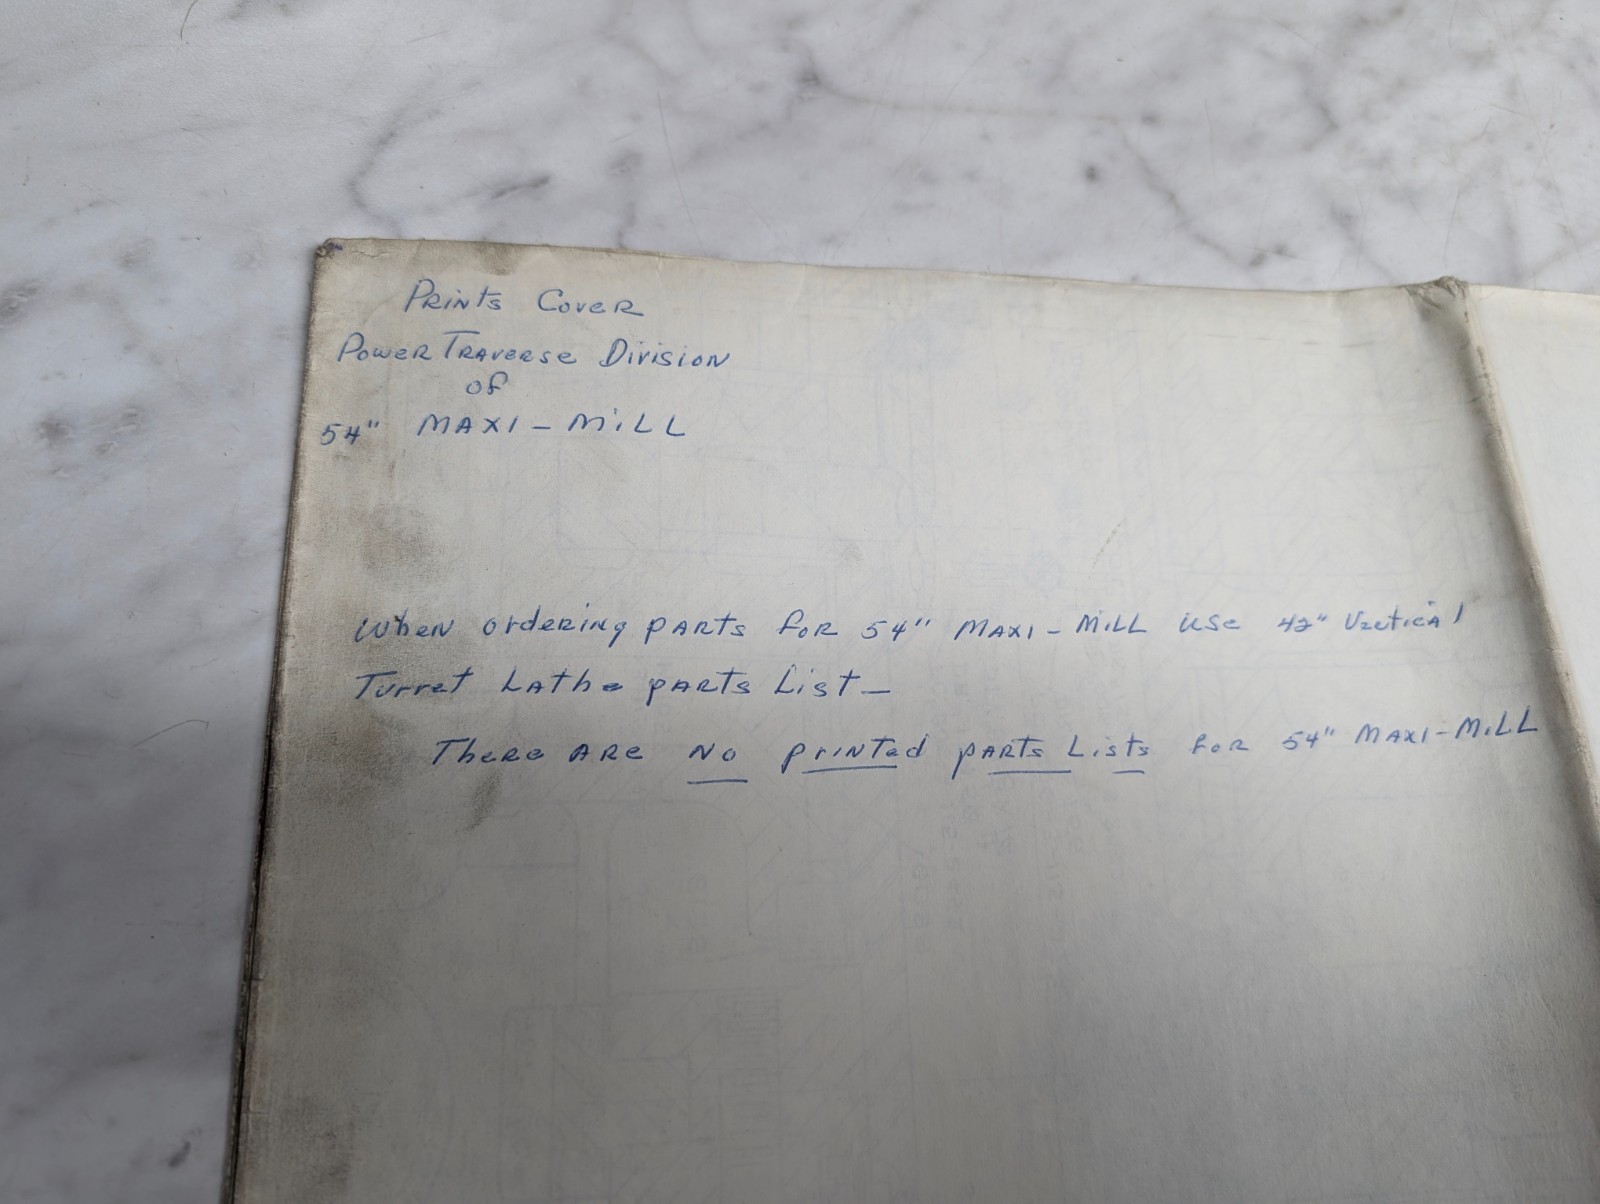 Prints Cover
Power Traverse Division
of
54" MAXI - MiLL
When ordering parts for 54" MAXI - MiLL use 42" Vertical
Turret Lathe parts List -
There are No printed parts Lists for 54" MAXI - MiLL